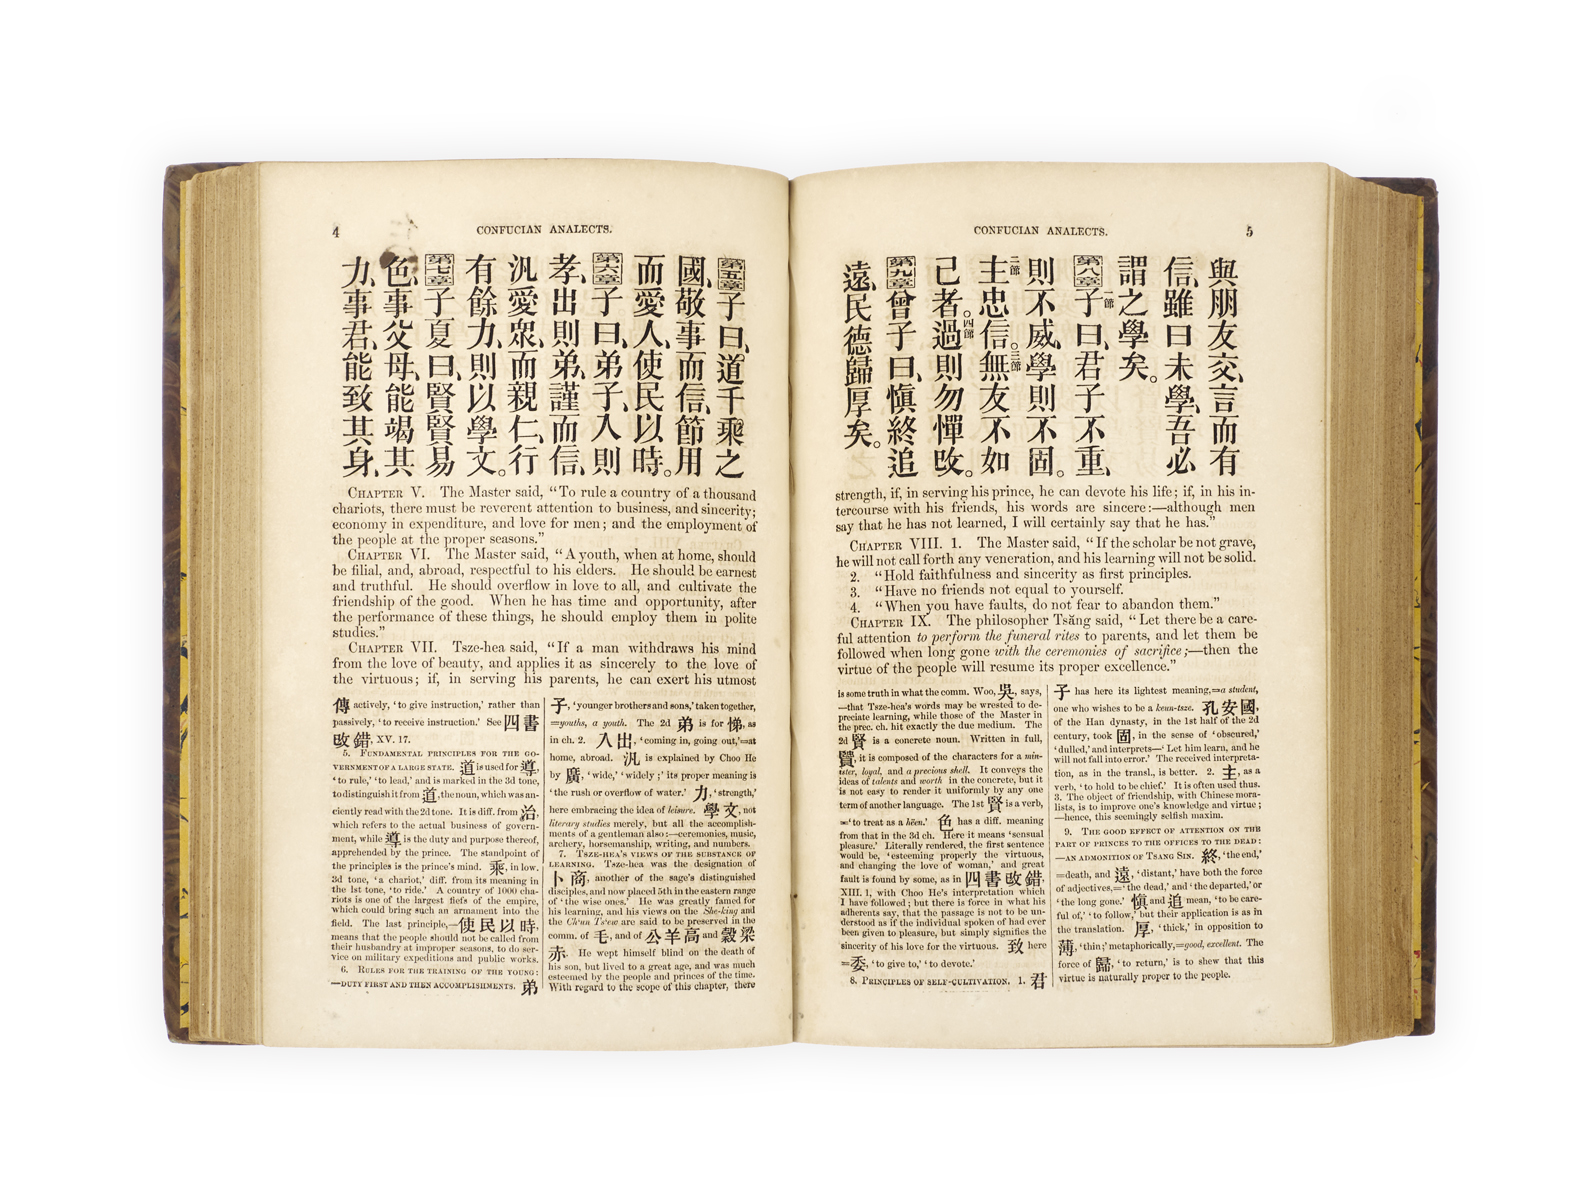 4
CONFUCIAN ANALECTS.
第五章子曰、道千乘之
國、敬事而信、節用
而愛人、使民以時。
第六章子曰、弟子、入則
孝、出則弟、謹而信、
汎愛眾、而親仁、行
有餘力、則以學文。
第七章子夏曰、賢賢易
色、事父母、能竭其
力、事君、能致其身、
CHAPTER V. The Master said, “To rule a country of a thousand
chariots, there must be reverent attention to business, and sincerity;
economy in expenditure, and love for men; and the employment of
the people at the proper seasons.”
CHAPTER VI. The Master said, “A youth, when at home, should
be filial, and, abroad, respectful to his elders. He should be earnest
and truthful. He should overflow in love to all, and cultivate the
friendship of the good. When he has time and opportunity, after
the performance of these things, he should employ them in polite
studies.”
CHAPTER VII. Tsze-hea said, “If a man withdraws his mind
from the love of beauty, and applies it as sincerely to the love of
the virtuous; if, in serving his parents, he can exert his utmost
傳 actively, ‘to give instruction,’ rather than
passively, ‘to receive instruction.’ See 四書
改錯, XV. 17.
5. FUNDAMENTAL PRINCIPLES FOR THE GO-
VERNMENT OF A LARGE STATE. 道 is used for 導,
‘to rule,’ ‘to lead,’ and is marked in the 3d tone,
to distinguish it from 道, the noun, which was an-
ciently read with the 2d tone. It is diff. from 治,
which refers to the actual business of govern-
ment, while 導 is the duty and purpose thereof,
apprehended by the prince. The standpoint of
the principles is the prince’s mind. 乘, in low.
3d tone, ‘a chariot,’ diff. from its meaning in
the 1st tone, ‘to ride.’ A country of 1000 cha-
riots is one of the largest fiefs of the empire,
which could bring such an armament into the
field. The last principle,—使民以時,
means that the people should not be called from
their husbandry at improper seasons, to do ser-
vice on military expeditions and public works.
6. RULES FOR THE TRAINING OF THE YOUNG:
—DUTY FIRST AND THEN ACCOMPLISHMENTS. 弟
子, ‘younger brothers and sons,’ taken together,
=youths, a youth. The 2d 弟 is for 悌, as
in ch. 2. 入出, ‘coming in, going out,’=at
home, abroad. 汎 is explained by Choo He
by 廣, ‘wide,’ ‘widely;’ its proper meaning is
‘the rush or overflow of water.’ 力, ‘strength,’
here embracing the idea of leisure. 學文, not
literary studies merely, but all the accomplish-
ments of a gentleman also:—ceremonies, music,
archery, horsemanship, writing, and numbers.
7. TSZE-HEA’S VIEWS OF THE SUBSTANCE OF
LEARNING. Tsze-hea was the designation of
卜商, another of the sage’s distinguished
disciples, and now placed 5th in the eastern range
of ‘the wise ones.’ He was greatly famed for
his learning, and his views on the She-king and
the Ch‘un Ts‘ew are said to be preserved in the
comm. of 毛, and of 公羊高 and 穀梁
赤. He wept himself blind on the death of
his son, but lived to a great age, and was much
esteemed by the people and princes of the time.
With regard to the scope of this chapter, there
CONFUCIAN ANALECTS.
5
與朋友交、言而有
信、雖曰未學、吾必
謂之學矣。
第八章一節子曰、君子不重、
則不威、學則不固。
二節主忠信。三節無友不如
己者。四節過則勿憚改。
第九章曾子曰、慎終追
遠、民德歸厚矣。
strength, if, in serving his prince, he can devote his life; if, in his in-
tercourse with his friends, his words are sincere:—although men
say that he has not learned, I will certainly say that he has.”
CHAPTER VIII. 1. The Master said, “If the scholar be not grave,
he will not call forth any veneration, and his learning will not be solid.
2. “Hold faithfulness and sincerity as first principles.
3. “Have no friends not equal to yourself.
4. “When you have faults, do not fear to abandon them.”
CHAPTER IX. The philosopher Tsăng said, “Let there be a care-
ful attention to perform the funeral rites to parents, and let them be
followed when long gone with the ceremonies of sacrifice;—then the
virtue of the people will resume its proper excellence.”
is some truth in what the comm. Woo, 吳, says,
—that Tsze-hea’s words may be wrested to de-
preciate learning, while those of the Master in
the prec. ch. hit exactly the due medium. The
2d 賢 is a concrete noun. Written in full,
贒, it is composed of the characters for a min-
ister, loyal, and a precious shell. It conveys the
ideas of talents and worth in the concrete, but it
is not easy to render it uniformly by any one
term of another language. The 1st 賢 is a verb,
=‘to treat as a hëen.’ 色 has a diff. meaning
from that in the 3d ch. Here it means ‘sensual
pleasure.’ Literally rendered, the first sentence
would be, ‘esteeming properly the virtuous,
and changing the love of woman,’ and great
fault is found by some, as in 四書改錯,
XIII. 1, with Choo He’s interpretation which
I have followed; but there is force in what his
adherents say, that the passage is not to be un-
derstood as if the individual spoken of had ever
been given to pleasure, but simply signifies the
sincerity of his love for the virtuous. 致 here
=委, ‘to give to,’ ‘to devote.’
8. PRINCIPLES OF SELF-CULTIVATION. 1. 君
子 has here its lightest meaning,=a student,
one who wishes to be a keun-tsze. 孔安國,
of the Han dynasty, in the 1st half of the 2d
century, took 固, in the sense of ‘obscured,’
‘dulled,’ and interprets—‘Let him learn, and he
will not fall into error.’ The received interpreta-
tion, as in the transl., is better. 2. 主, as a
verb, ‘to hold to be chief.’ It is often used thus.
3. The object of friendship, with Chinese mora-
lists, is to improve one’s knowledge and virtue;
—hence, this seemingly selfish maxim.
9. THE GOOD EFFECT OF ATTENTION ON THE
PART OF PRINCES TO THE OFFICES TO THE DEAD:
—AN ADMONITION OF TSANG SIN. 終, ‘the end,’
=death, and 遠, ‘distant,’ have both the force
of adjectives,=‘the dead,’ and ‘the departed,’ or
‘the long gone.’ 慎 and 追 mean, ‘to be care-
ful of,’ ‘to follow,’ but their application is as in
the translation. 厚, ‘thick,’ in opposition to
薄, ‘thin;’ metaphorically,=good, excellent. The
force of 歸, ‘to return,’ is to shew that this
virtue is naturally proper to the people.